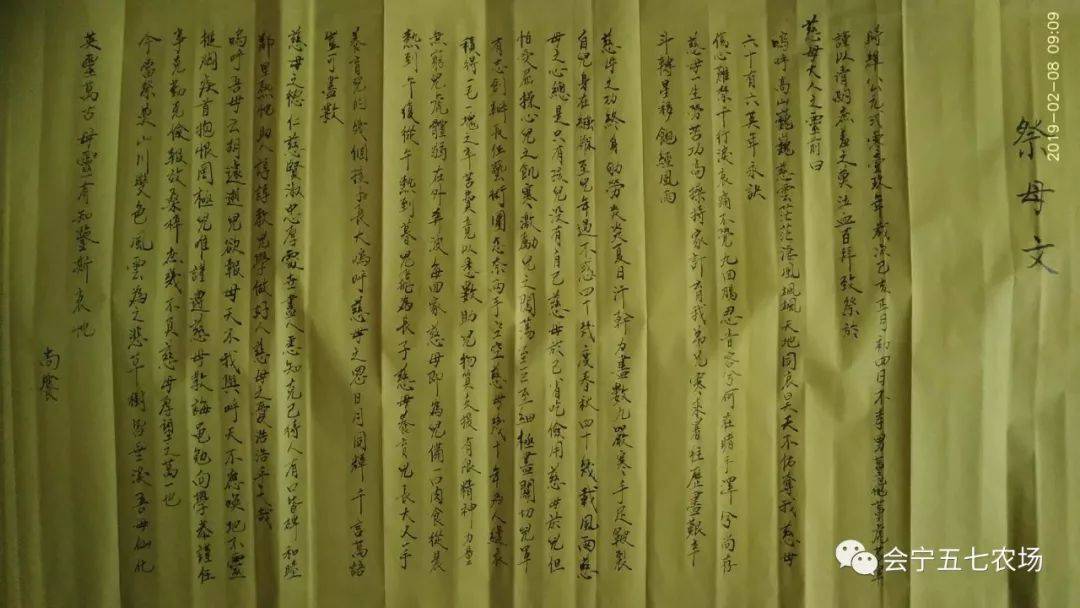 祭母文
時維公元二零壹玖年歲次己亥正月初四日不孝男
謹以清酌庶羞之奠泣血百拜致祭於
慈母大人之靈前曰
嗚呼高山巍巍慈雲茫茫淒風颯颯天地同哀昊天不佑奪我慈母
六十有六英年永訣
傷心難禁千行淚哀痛不覺九回腸忍音容兮何在睹手澤兮尚存
慈母一生勞苦功高操持家計育我弟兄寒來暑往歷盡艱辛
斗轉星移飽經風雨
慈母之功終身勤勞炎炎夏日汗幹力盡數九嚴寒手足皸裂
自兒身在襁褓至兒年過不惑四十幾度春秋四十幾載風雨慈
母之心總是只有孩兒沒有自己慈母於己省吃儉用慈母於兒但
怕受屈操心兒之飢寒激勵兒之闖蕩至巨至細極盡關切兒軍
有志到縣長征藝術團怎奈兩手空空慈母幾十年為人縫衣
積得一塊之辛苦費竟以悉數助兒物質支援有限精神力量
無窮兒荒體弱在外奔波每回家慈母即為兒備一口肉食從晨
熱到午復從午熱到暮兒能為長子慈母養育兒長大大手
養育兒的幾個孩子長大嗚呼慈母之恩日月同輝千言萬語
豈可盡數
慈母之德仁慈賢淑忠厚處世盡人悉知克己待人有口皆碑和睦
鄰里熱忱助人諄諄教兒學做好人慈母之愛浩浩乎大哉
嗚呼吾母云胡遽逝兒欲報母天不我與呼天不應喚地不靈
搥胸疾首抱恨罔極兒唯謹遵慈母教誨黽勉向學恭謹任
事克勤克儉報效桑梓庶幾不負慈母厚望之萬一也
今當祭奠山川變色風雲為之悲草樹皆垂淚吾母仙化
英靈萬古母靈有知鑒斯哀忱
尚饗
2019-02-08 09:09
会宁五七农场